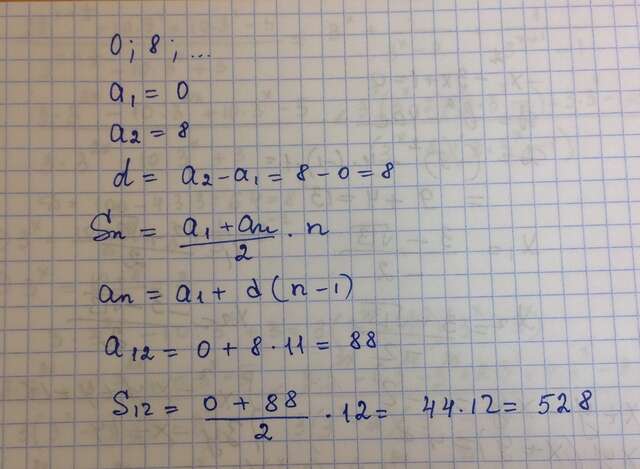 0; 8; ...
a₁ = 0
a₂ = 8
d = a₂ - a₁ = 8 - 0 = 8
Sₙ = (a₁ + aₙ)/2 · n
aₙ = a₁ + d(n - 1)
a₁₂ = 0 + 8 · 11 = 88
S₁₂ = (0 + 88)/2 · 12 = 44 · 12 = 528